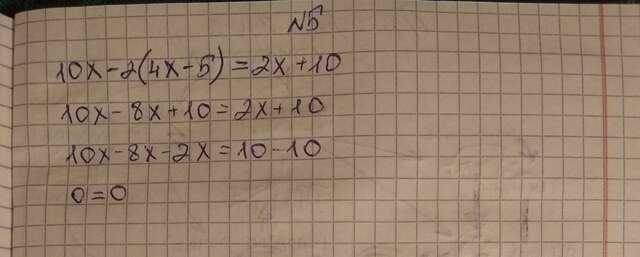 N5
10x-2(4x-5)=2x+10
10x-8x+10=2x+10
10x-8x-2x=10-10
0=0